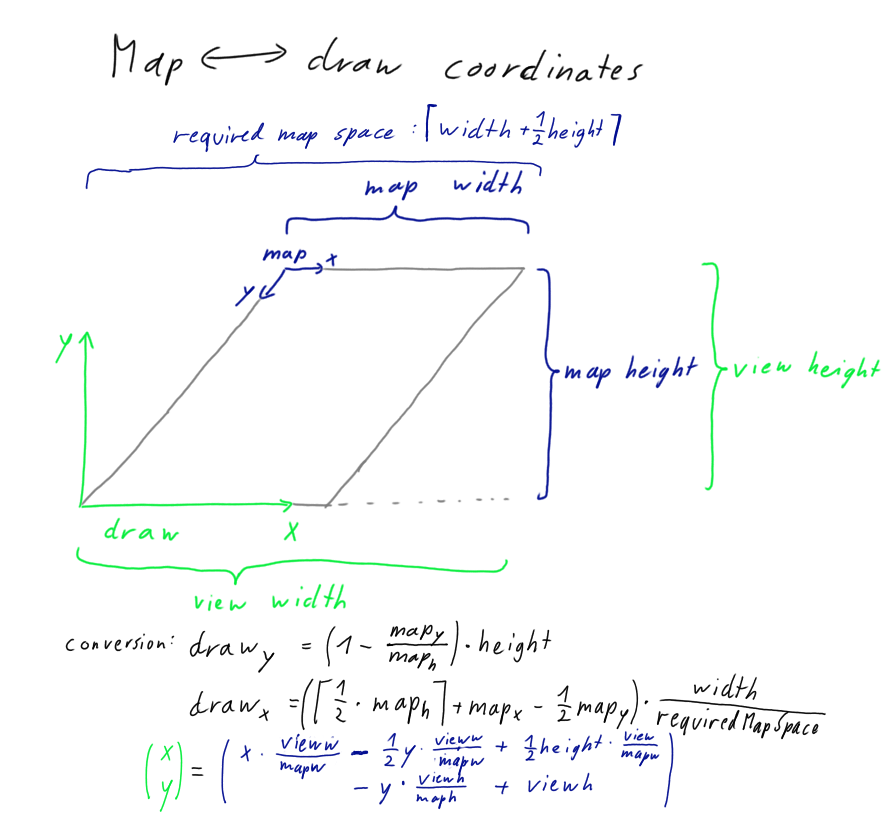 Map ⟷ draw coordinates
required map space : ⌈width + 1/2 height⌉
map width
map
x
y
y
map height
view height
draw
x
view width
conversion: draw_y = (1 - map_y/map_h) · height
draw_x = (⌈1/2 · map_h⌉ + map_x - 1/2 map_y) · width/requiredMapSpace
(x y) = (x · vieww/mapw - 1/2 y · vieww/mapw + 1/2 height · view/mapw
- y · viewh/maph + viewh)